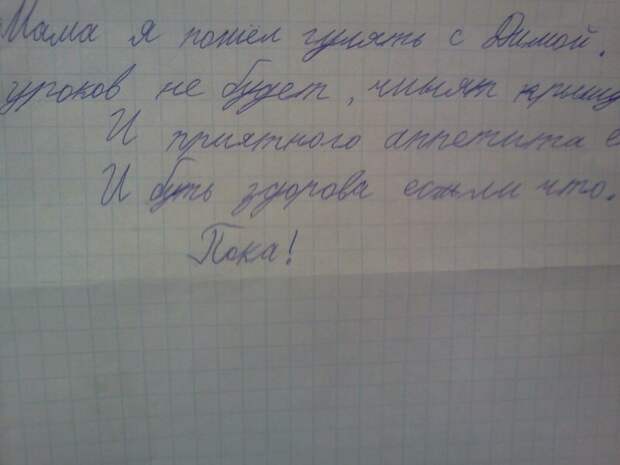 Мама я пошёл гулять с Димой.
уроков не будет, чинят крышу
И приятного аппетита е
И буть здорова если что.
Пока!